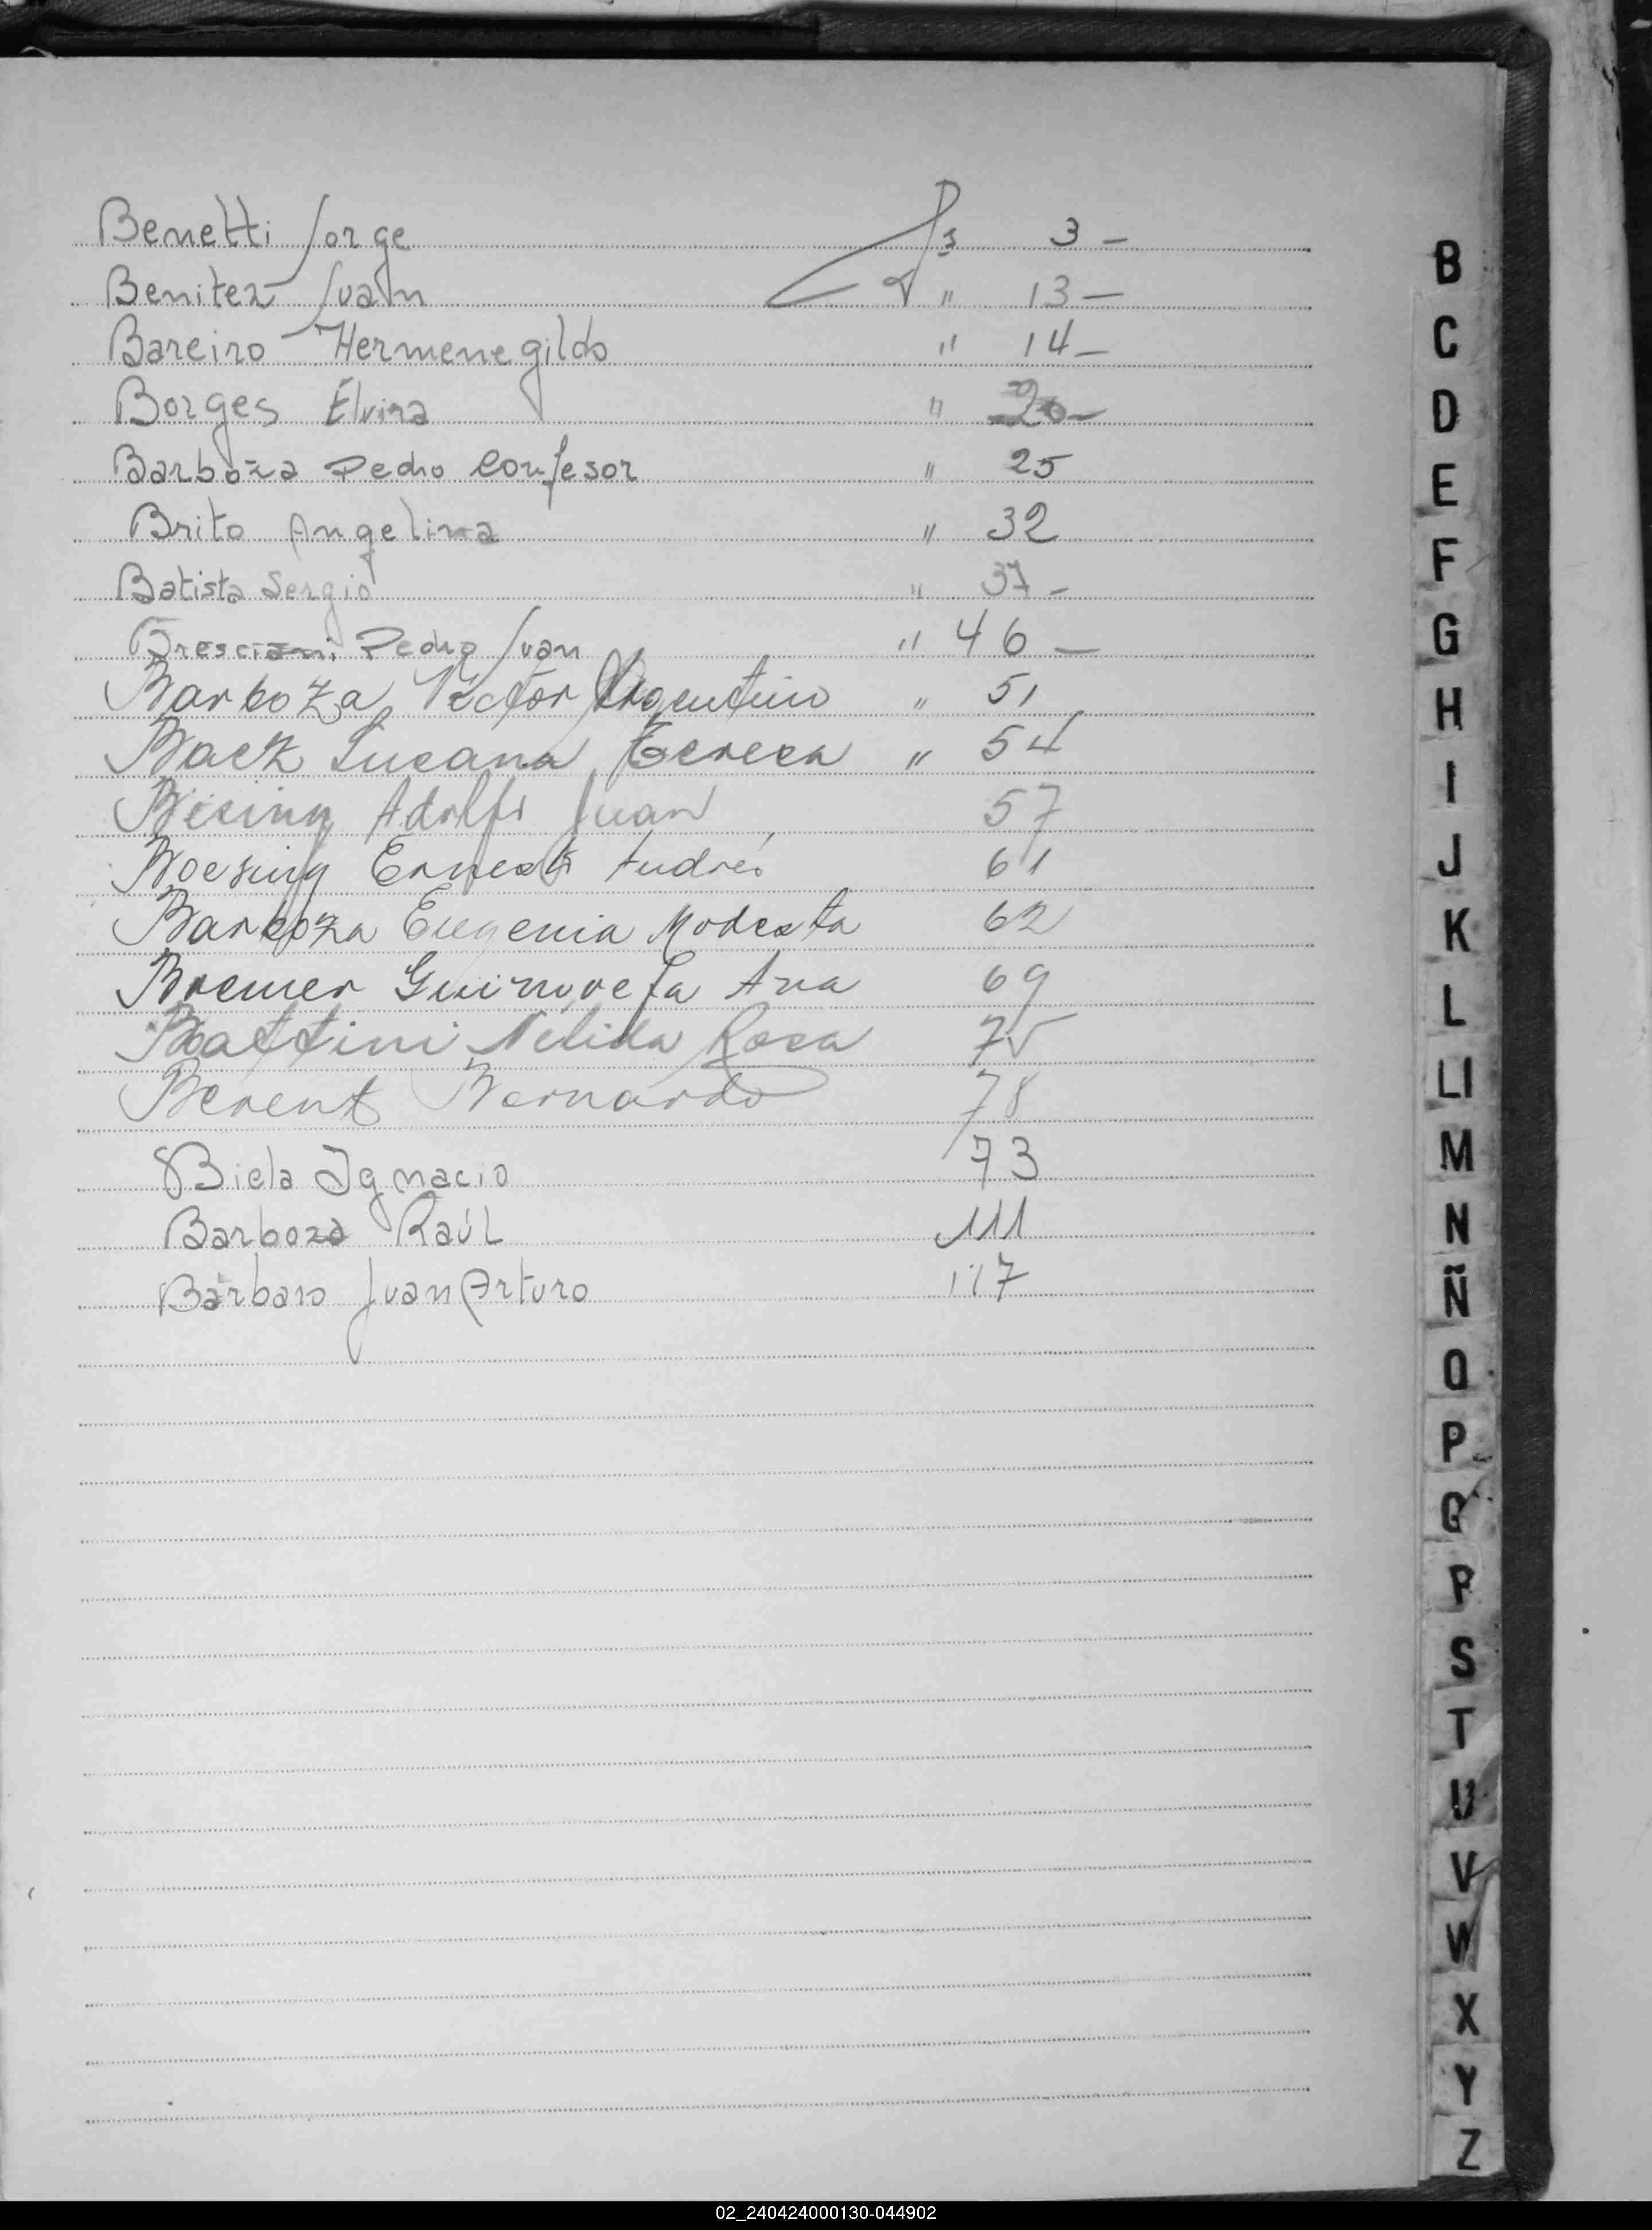 Benetti Jorge Ps 3 -
Benitez Juan " 13 -
Bareiro Hermenegildo " 14 -
Borges Elvira " 20 -
Barboza Pedro Confesor " 25
Brito Angelina " 32
Batista Sergio " 37 -
Bresciani Pedro Juan " 46 -
Barboza Victor Argentino " 51
Back Susana Teresa " 54
Adolfo Juan 57
Boesing Ernesto Andrés 61
Barboza Eugenia Modesta 62
Bremer Ana 69
Battini Nelida Rosa 75
Berent Bernardo 78
Biela Ignacio 73
Barboza Raúl 111
Bárbaro Juan Arturo 117
B
C
D
E
F
G
H
I
J
K
L
Ll
M
N
Ñ
O
P
Q
R
S
T
U
V
W
X
Y
Z
02_240424000130-044902